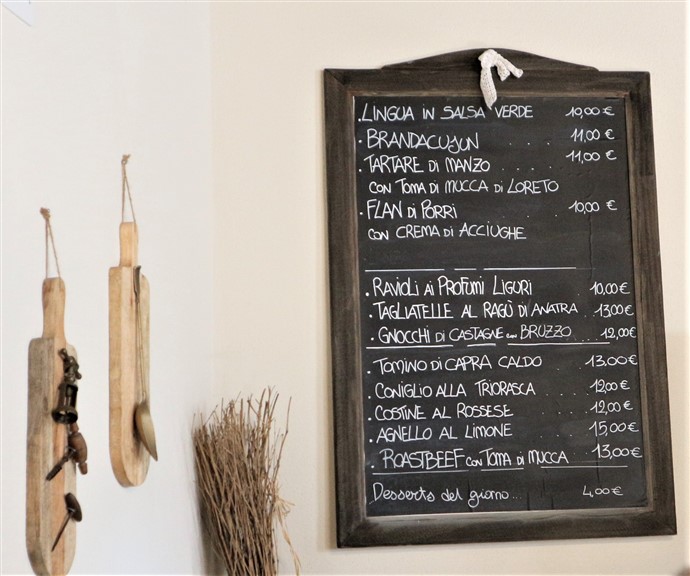 . LINGUA IN SALSA VERDE 10,00 €
. BRANDACUJUN 11,00 €
. TARTARE DI MANZO . . . . 11,00 €
CON TOMA DI MUCCA DI LORETO
. FLAN DI PORRI . . . . 10,00 €
CON CREMA DI ACCIUGHE
. RAVIOLI AI PROFUMI LIGURI 10,00 €
. TAGLIATELLE AL RAGÙ DI ANATRA . 13,00 €
. GNOCCHI DI CASTAGNE CON BRUZZO . . . 12,00 €
. TOMINO DI CAPRA CALDO . . . 13,00 €
. CONIGLIO ALLA TRIORASCA . . . . 12,00 €
. COSTINE AL ROSSESE . . . . 12,00 €
. AGNELLO AL LIMONE . . . . 15,00 €
. ROASTBEEF CON TOMA DI MUCCA . . 13,00 €
Desserts del giorno... 4,00 €